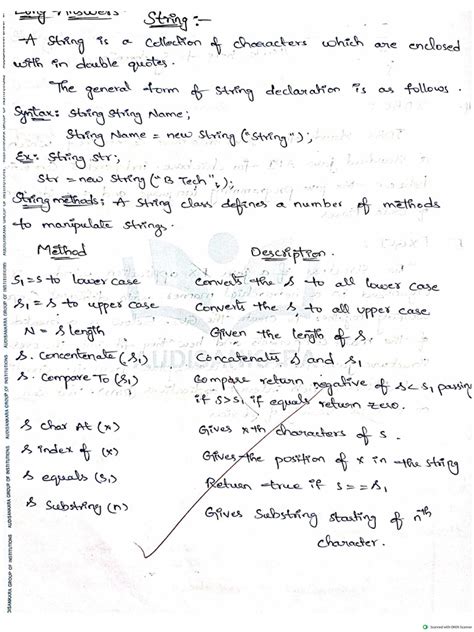 Long Answers
String :-
-A String is a collection of characters which are enclosed
with in double quotes.
The general form of string declaration is as follows.
Syntax: String String Name;
String Name = new String ("String");
Ex: String str;
Str = new String ("B Tech");
String methods: A String class defines a number of methods
to manipulate strings.
Method Description.
S1 = S to lower case Converts the S to all lower case
S1 = S to upper case Converts the S, to all upper case
N = S length Given the length of S.
S. Concentenate (S1) Concatenates S and S1
S. Compare To (S1) Compare return negative of S < S1 passing
if S>S1 if equals return zero.
S char At (x) Gives xth characters of S.
S index of (x) Gives the position of x in the string
S equals (S1) Return true if S == S1
S Substring (n) Gives Substring starting of nth
character.
AUDISANKARA GROUP OF INSTITUTIONS
Scanned with OKEN Scanner